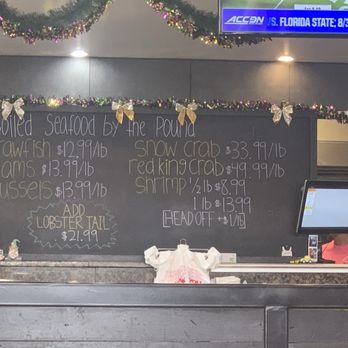 ACCDN VS. FLORIDA STATE: 8/3
Boiled Seafood by the Pound
rawfish $12.99/lb
ams $13.99/lb
ussels $13.99/lb
ADD
LOBSTER TAIL
$21.99
snow crab $33.99/lb
red king crab $49.99/lb
shrimp ½ lb $8.99
1 lb $13.99
[HEAD OFF +$1/lb]